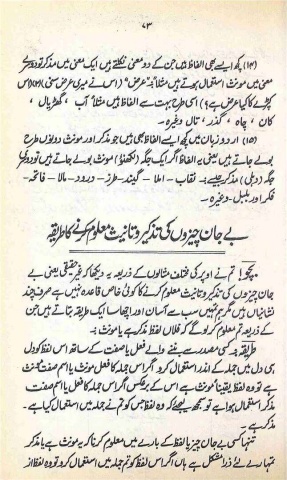 ۷۳
(۱۴) کچھ ایسے بھی الفاظ ہیں جن کے دو معنی نکلتے ہیں ایک معنی میں مذکر تو دوسرے
معنی میں مونث استعمال ہوتے ہیں مثلاً: "عرض" (اس نے میری عرض سنی) (۲) (اس
کپڑے کا کیا عرض ہے؟) اسی طرح بہت سے الفاظ ہیں مثلاً آب ، گھڑیال ،
کان ، چاہ ، گذر ، تال وغیرہ۔
(۱۵) اردو زبان میں کچھ ایسے الفاظ بھی ہیں جو مذکر اور مونث دونوں طرح
بولے جاتے ہیں یعنی یہ الفاظ اگر ایک جگہ (لکھنؤ) مونث بولے جاتے ہیں تو دوسری
جگہ (دہلی) مذکر جیسے:۔ نقاب ۔ املا ۔ گیند ۔ طرز ۔ درود ۔ مالا ۔ فاتحہ ۔
فکر اور بلبل ۔ وغیرہ۔
بے جان چیزوں کی تذکیر و تانیث معلوم کرنے کا طریقہ
بچو! تم نے اوپر کی مختلف مثالوں کے ذریعہ یہ دیکھا کہ غیر حقیقی یعنی بے
جان چیزوں کی تذکیر و تانیث معلوم کرنے کا کوئی خاص قاعدہ نہیں ہے صرف چند
نشانیاں ہیں مگر ہم تمہیں سب سے آسان اور اچھا سا ایک طریقہ بتاتے ہیں جن
کے ذریعہ تم معلوم کر لو گے کہ فلاں لفظ مذکر ہے یا مونث:۔
طریقہ:۔ کسی مصدر سے بننے والے فعل یا صفت کے ساتھ اس لفظ کو دل
ہی دل میں جملہ کے اندر استعمال کرو اگر اس جملہ کا فعل مونث یا اسم صفت مونث
ہے تو وہ لفظ یقیناً مونث ہے اس کے برعکس اگر اس جملہ کا فعل یا اسم صفت
مذکر استعمال ہوا ہے تو سمجھ لیجئے کہ وہ لفظ جس کو تم نے جملہ میں استعمال کیا ہے۔
مذکر ہے۔
تنہا کسی بے جان چیز یا لفظ کے بارے میں معلوم کرنا کہ یہ مونث ہے یا مذکر
تمہارے لئے ذرا مشکل ہے ہاں اگر اس لفظ کو تم جملہ میں استعمال کرو تو وہ لفظ از